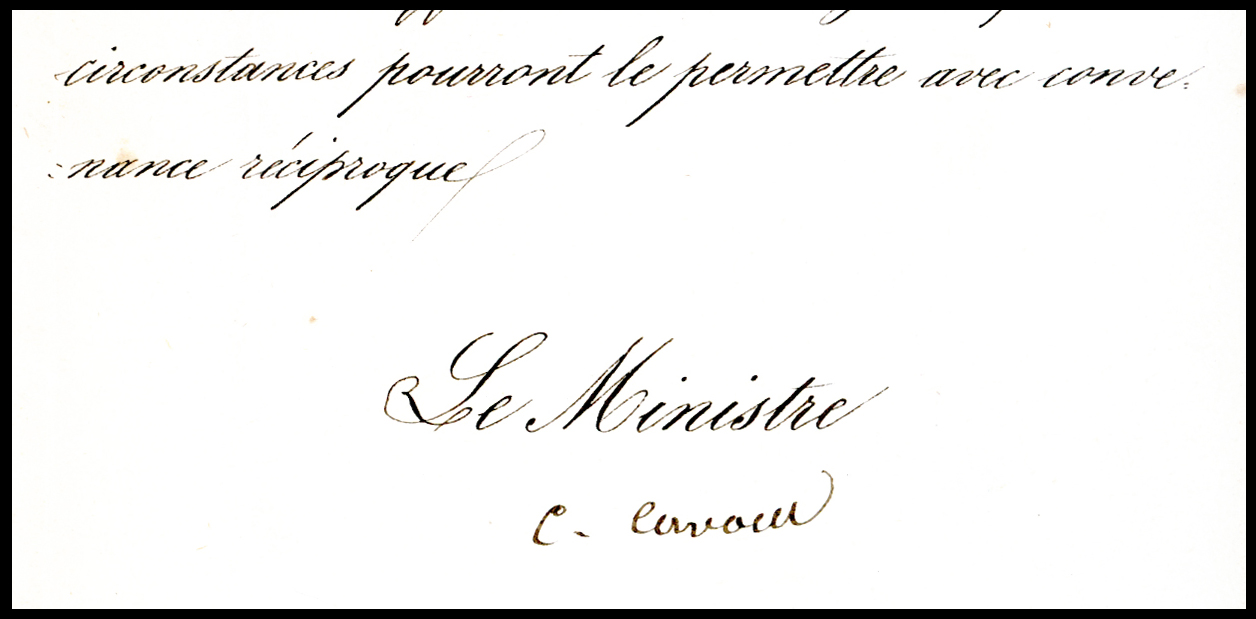 circonstances pourront le permettre avec conve=
=nance réciproque
Le Ministre
C. Cavour